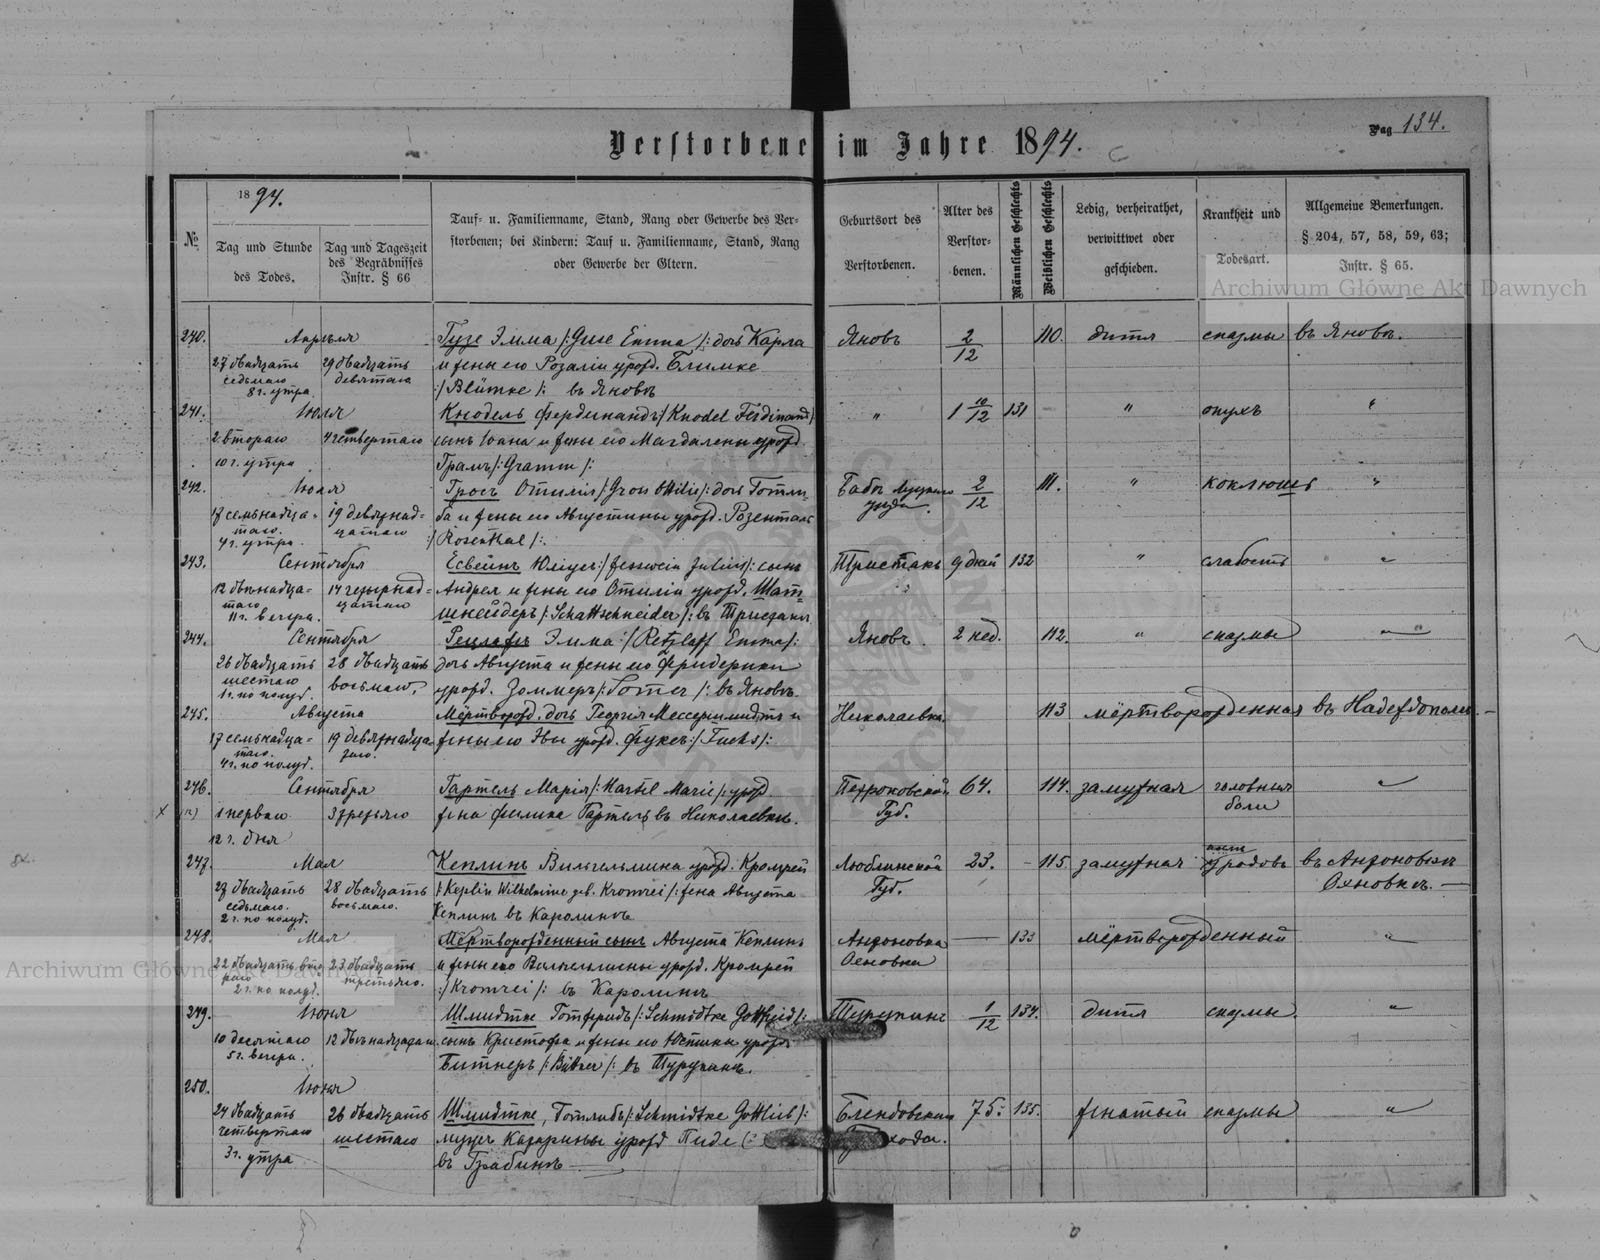 Verstorbene im Jahre 1894.
Pag 134.
№
1894.
Tag und Stunde
des Todes.
Tag und Tageszeit
des Begräbnisses
Instr. § 66
Tauf- u. Familienname, Stand, Rang oder Gewerbe des Ver-
storbenen; bei Kindern: Tauf u. Familienname, Stand, Rang
oder Gewerbe der Eltern.
Geburtsort des
Verstorbenen.
Alter des
Verstor-
benen.
Männlichen Geschlechts
Weiblichen Geschlechts
Ledig, verheirathet,
verwittwet oder
geschieden.
Krankheit und
Todesart.
Allgemeine Bemerkungen.
§ 204, 57, 58, 59, 63;
Instr. § 65.
Archiwum Główne Akt Dawnych
240. Апрѣля Гузе Эмма /: Guse Emma /: дочь Карла Яновъ 2/12 110. дитя спазмы въ Яновѣ.
27 двадцать 29 двадцать и жены его Розаліи урожд. Блимке
седьмаго девятаго
8 г. утра :/ Blümke /: въ Яновѣ
241. Іюля Кнодель Фердинандъ /: Knodel Ferdinand / " 1 10/12 131 — " опухъ "
2 втораго 4 четвертаго сынъ Іоана и жены его Магдалены урожд.
10 г. утра Грамъ /: Gramm /:
242. Іюля Гросъ Отилія /: Gross Ottilie /: дочь Готли- Бабы Луцкаго 2/12 111. " коклюшъ "
17 семьнадца- 19 девятнад- ба и жены его Августины урожд. Розенталь уѣзда.
таго цатаго
4 г. утра :/ Rosenthal /:
243. Сентября Есвейнъ Юліусъ :/ Jesswein Julius /: сынъ 9 дней 132 " слабость "
12 двѣнадца- 14 четырнад- Андрея и жены его Отиліи урожд. Шат-
таго цатаго
11 г. вечера. шнейдеръ /: Schattschneider /: въ
244. Сентября Рецлафъ Эмма :/ Retzlaff Emma /: Яновъ. 2 нед. 112. " спазмы "
26 двадцать 28 двадцать дочь Августа и жены его Фридерики
шестаго восьмаго,
1 г. по полуд. урожд. Зоммеръ /: Somer /: въ Яновѣ.
245. Августа Мёртворожд. дочь Георгія Мессершмидтъ и Николаевка. 113 мёртворожденная въ Надеждополи. —
17 семьнадца- 19 девятнадца- жены его Эвы урожд. Фуксъ :/ Fuchs /:
таго таго.
4 г. по полуд.
246. Сентября Гартель Марія /: Hartel Marie /: урожд. Петроковской 64. 114. замужная головныя "
1 перваго 3 третьяго жена Филипа Гартель въ Николаевкѣ. Губ. боли
12 г. дня
247. Мая Кеплинъ Вильгельмина урожд. Кромрей Люблинской 23. — 115. замужная родовъ въ Антоновкѣ
27 двадцать 28 двадцать /: Keplin Wilhelmine geb. Kromrei /: жена Августа Губ. Основкѣ. —
седьмаго. восьмаго.
2 г. по полуд. Кеплинъ въ Каролинѣ
248. Мая Мёртворожденный сынъ Августа Кеплинъ Антоновка — 133 мёртворожденный "
22 двадцать вто- 23 двадцать и жены его Вильгельмины урожд. Кромрей Основка
раго третьяго.
2 г. по полуд. :/ Kromrei /: въ Каролинѣ
Archiwum Główne Akt Dawnych
249. Іюня Шмидтке Готфридъ /: Schmidtke Gottfried /: Турупинъ 1/12 134. дитя спазмы. "
10 десятаго 12 двѣнадцатаго сынъ Кристофа и жены его Юстины урожд.
5 г. вечера. Битнеръ /: Büttner /: въ Турупинѣ.
250. Іюня
24 двадцать 26 двадцать Шмидтке, Готлибъ /: Schmidtke Gottlieb /: 75: 135. женатый спазмы "
четвертаго шестаго мужъ Катарины урожд Пиде
3 г. утра въ Грабинѣ —